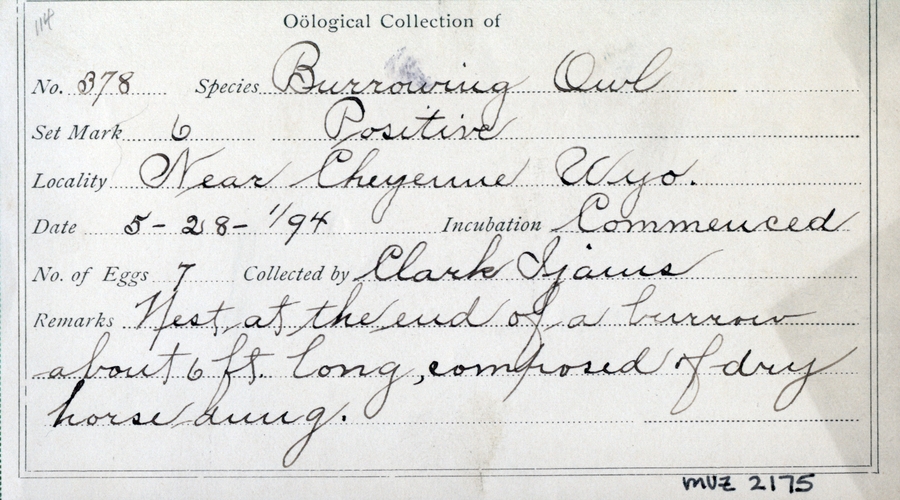 114
Oölogical Collection of
No. 378 Species Burrowing Owl
Set Mark 6 Positive
Locality Near Cheyenne Wyo.
Date 5-28-1/94 Incubation Commenced
No. of Eggs 7 Collected by Clark Ijams
Remarks Nest at the end of a burrow
about 6 ft. long, composed of dry
horse dung.
MVZ 2175